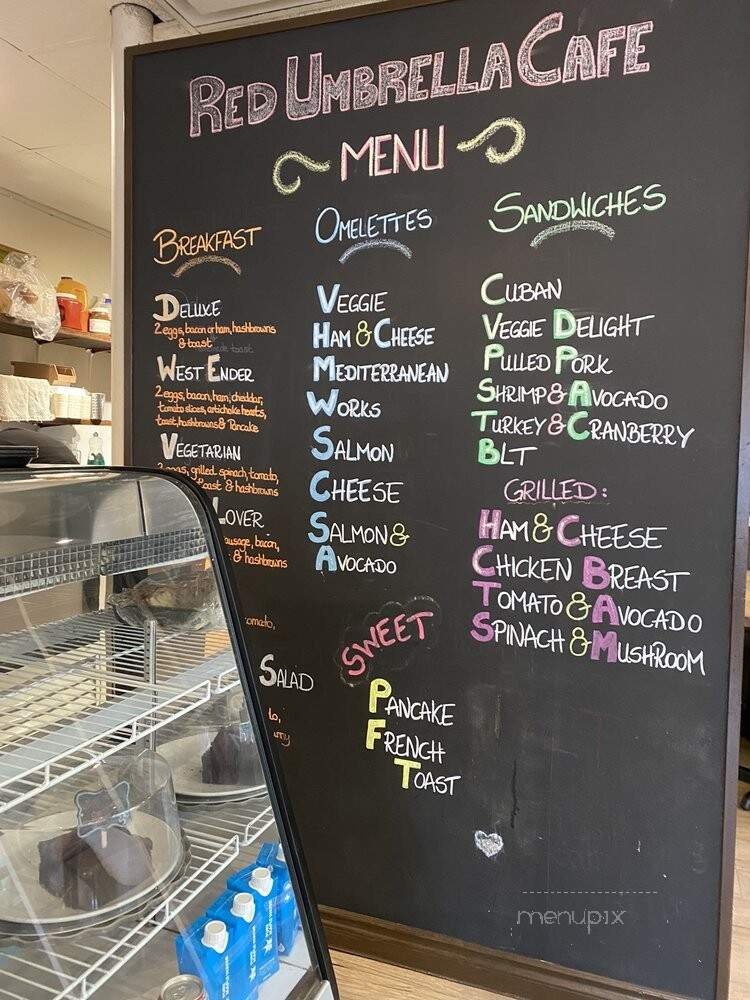 RED UMBRELLA CAFE
MENU
BREAKFAST
DELUXE
2 eggs, bacon or ham, hashbrowns
& toast
WEST ENDER
2 eggs, bacon, ham, cheddar,
tomato slices, artichoke hearts,
toast, hashbrowns & Pancake
VEGETARIAN
2 eggs, grilled spinach, tomato,
toast & hashbrowns
LOVER
sausage, bacon,
& hashbrowns
tomato,
SALAD
OMELETTES
VEGGIE
HAM & CHEESE
MEDITERRANEAN
WORKS
SALMON
CHEESE
SALMON &
AVOCADO
SWEET
PANCAKE
FRENCH
TOAST
SANDWICHES
CUBAN
VEGGIE DELIGHT
PULLED PORK
SHRIMP & AVOCADO
TURKEY & CRANBERRY
BLT
GRILLED:
HAM & CHEESE
CHICKEN BREAST
TOMATO & AVOCADO
SPINACH & MUSHROOM
menupix